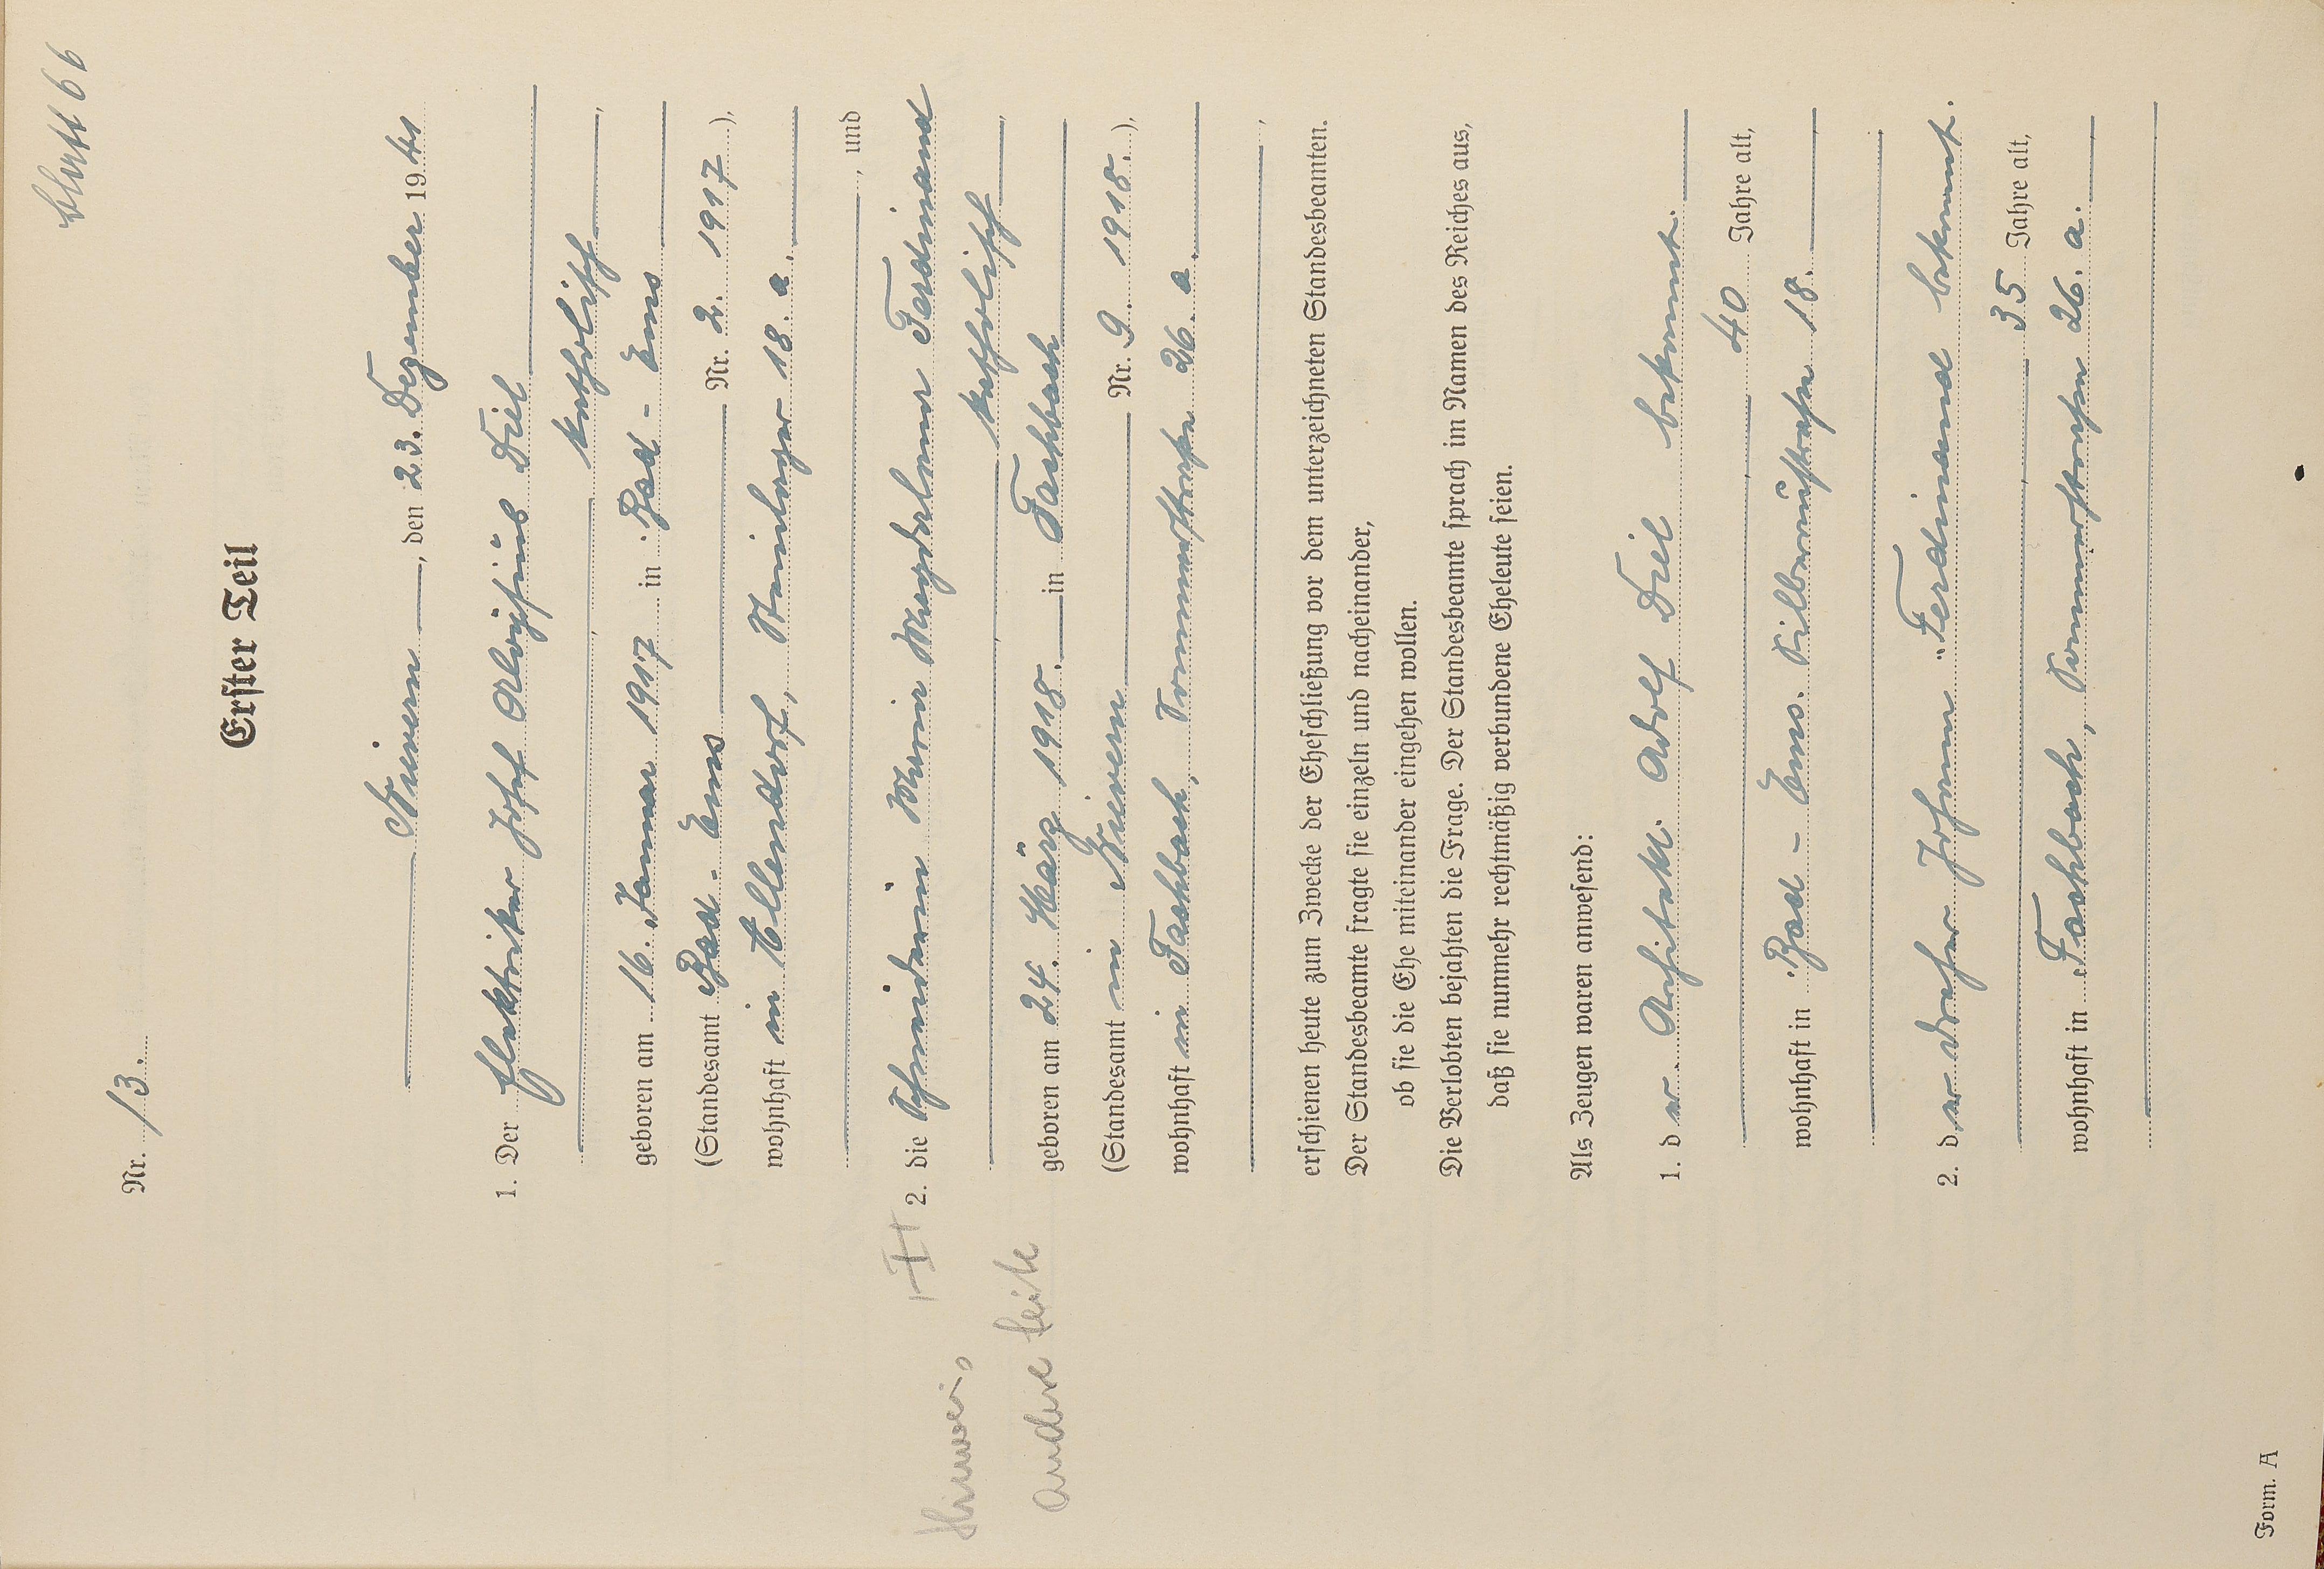 Blatt 66
Nr. 13.
Erster Teil
Nievern, den 23. Dezember 1941
1. Der Elektriker Josef Aloysius Diel
katholisch
geboren am 16. Januar 1917 in Bad-Ems
(Standesamt Bad-Ems Nr. 2. 1917),
wohnhaft in Allendorf, Steinlager 18. a.
, und
2. die Schneiderin Maria Magdalena Ferdinand
katholisch
Hinweis
geboren am 24. März 1918. in Fachbach
andere Seite
(Standesamt in Nievern Nr. 9. 1918.),
wohnhaft in Fachbach, Sommerstraße 26. a.
erschienen heute zum Zwecke der Eheschließung vor dem unterzeichneten Standesbeamten.
Der Standesbeamte fragte sie einzeln und nacheinander,
ob sie die Ehe miteinander eingehen wollen.
Die Verlobten bejahten die Frage. Der Standesbeamte sprach im Namen des Reiches aus,
daß sie nunmehr rechtmäßig verbundene Eheleute seien.
Als Zeugen waren anwesend:
1. der Architekt. Adolf Diel bekannt.
40 Jahre alt,
wohnhaft in Bad-Ems. Silberaustraße 18.
2. der Dreher Johann Ferdinand bekannt.
35 Jahre alt,
wohnhaft in Fachbach, Sommerstraße 26. a.
Form. A